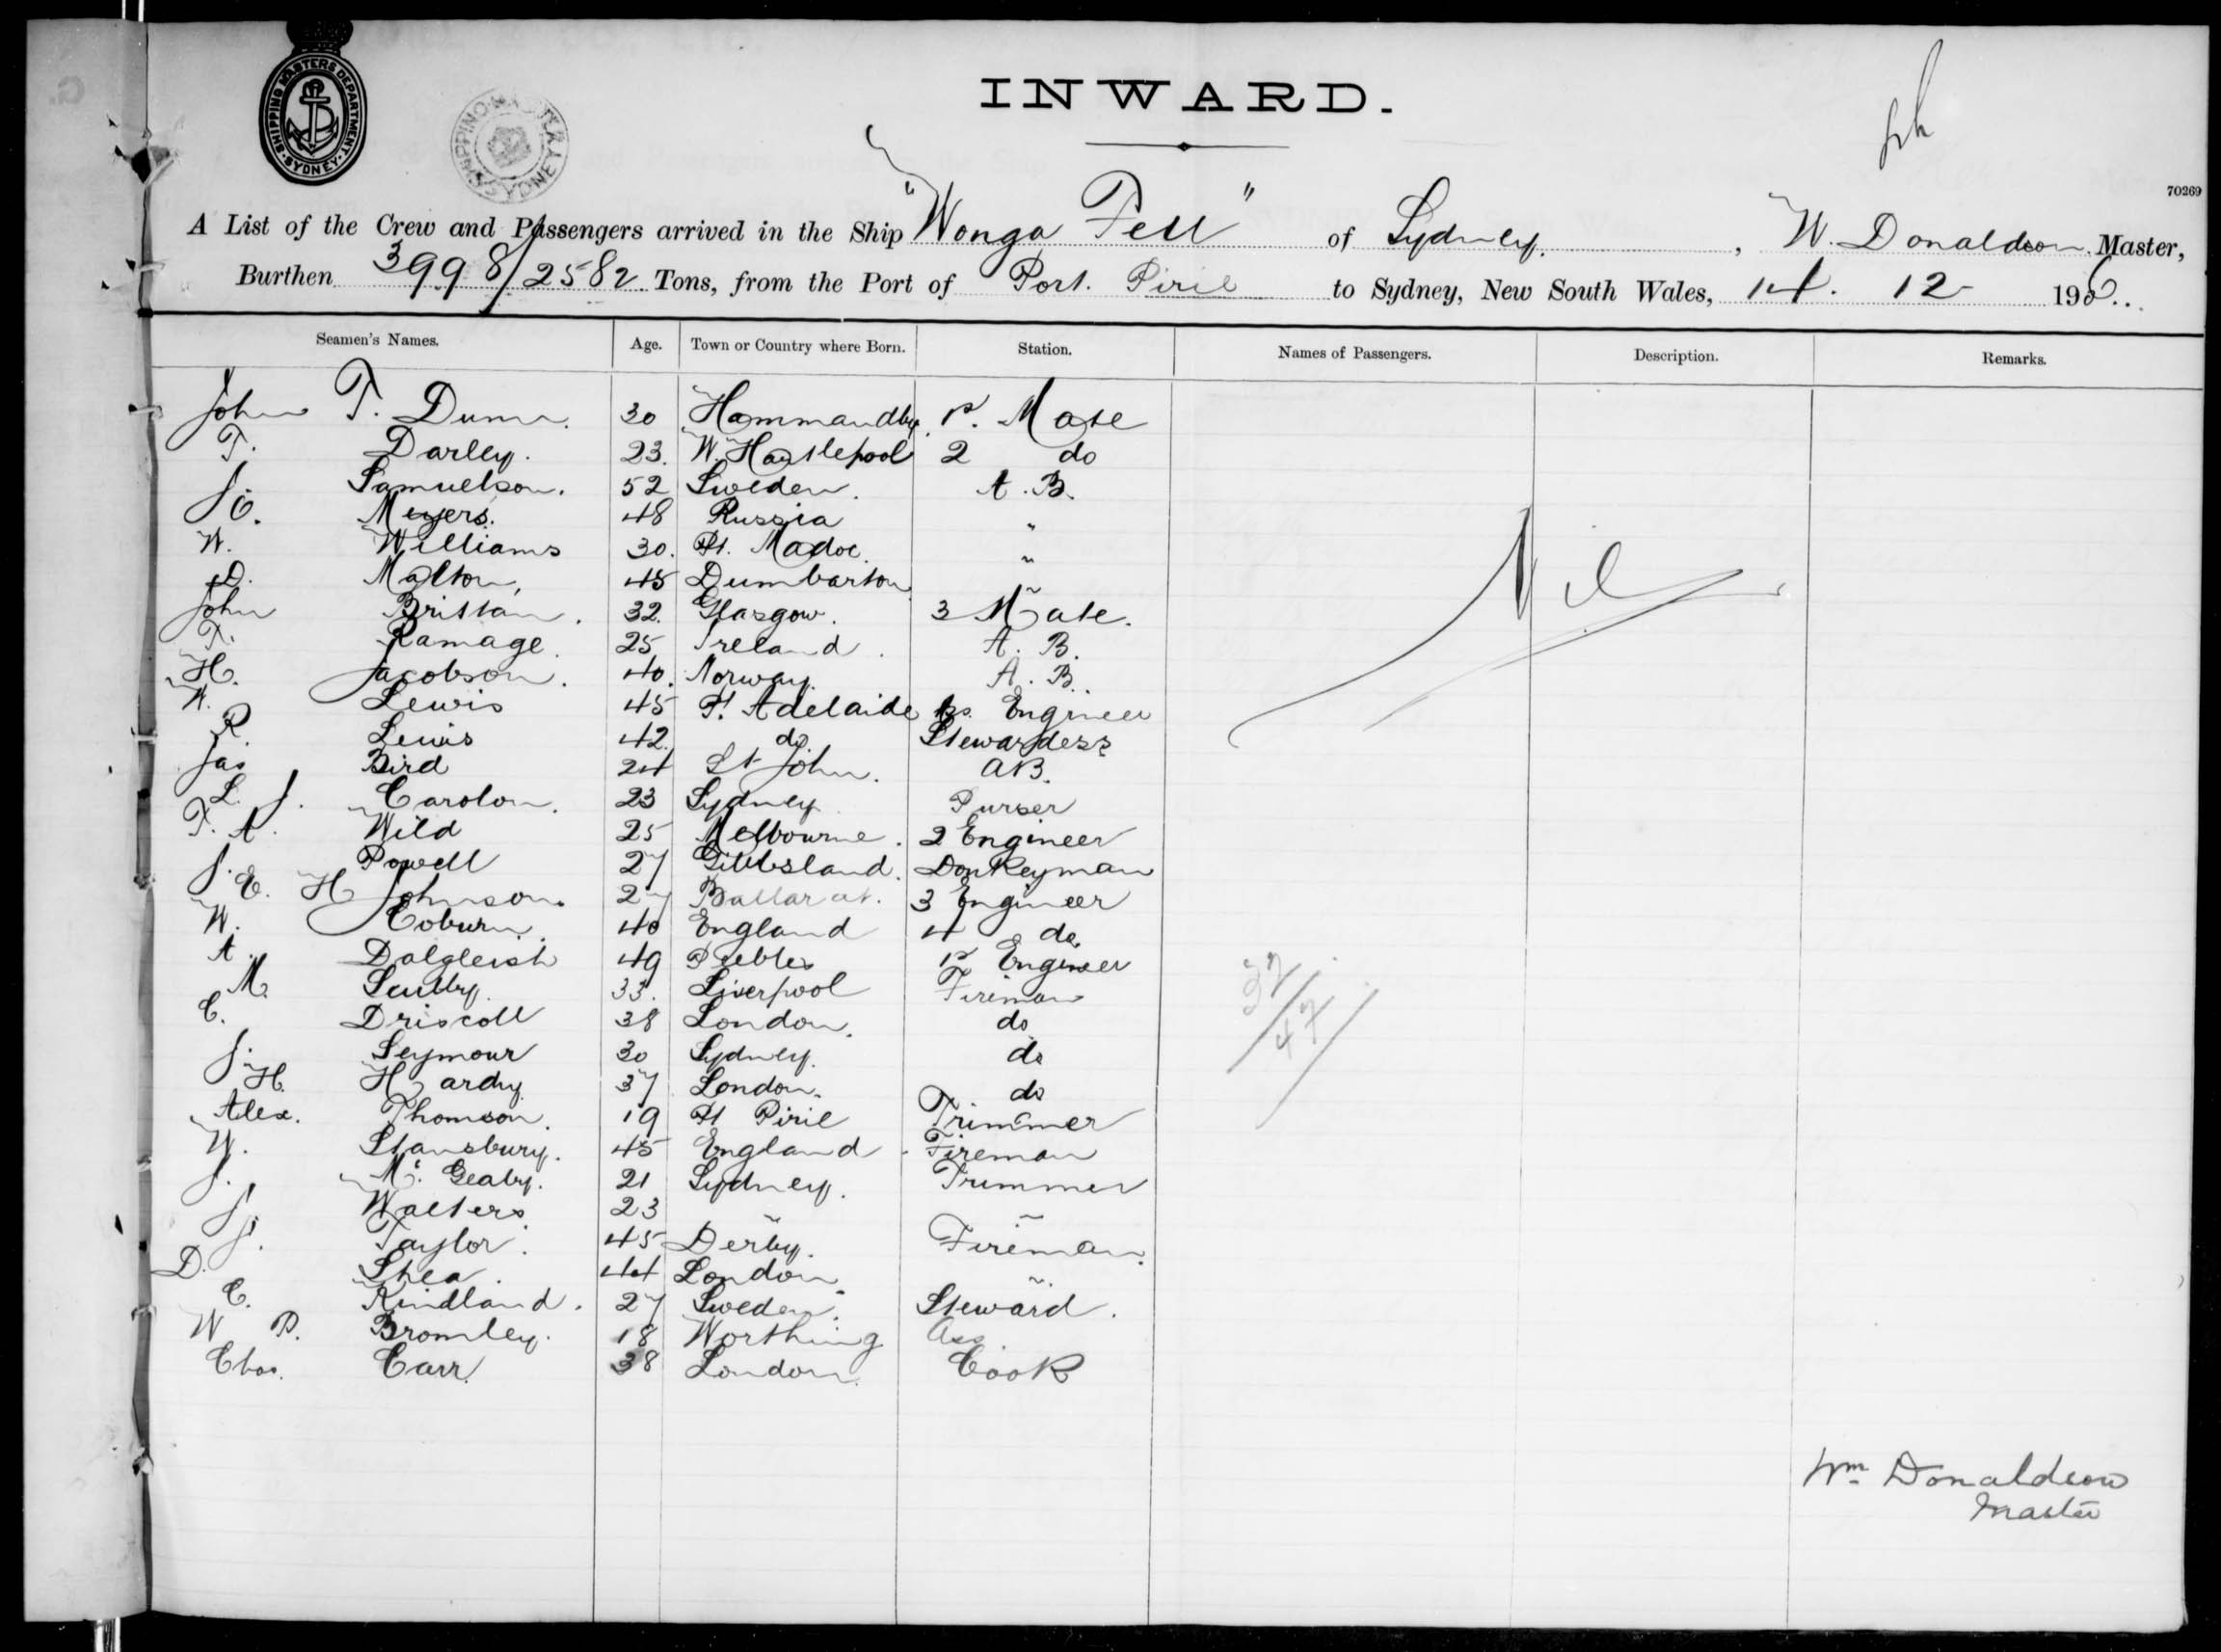 SHIPPING MASTERS DEPARTMENT
SYDNEY
INWARD.
70269
A List of the Crew and Passengers arrived in the Ship "Wonga Fell" of Sydney, W. Donaldson Master,
Burthen 3998/2582 Tons, from the Port of Port. Pirie to Sydney, New South Wales, 14. 12 190..
Seamen's Names. Age. Town or Country where Born. Station. Names of Passengers. Description. Remarks.
John T. Dunn. 30 1st Mate
T. Darley. 23. W. Hartlepool 2 do
J. Samuelson. 52 Sweden. A. B.
Meyers. 48 Russia "
W. Williams 30. Pt. Madoc. "
D. Malton, 45 Dumbarton "
John Brittain. 32. Glasgow. 3 Mate.
T. Ramage. 25 Ireland. A. B.
H. Jacobson. 40. Norway. A. B.
W. Lewis 45 Pt. Adelaide Engineer
R. Lewis 42. do Stewardess
Jas Bird 24 St John. AB.
L. J. Carolon. 23 Sydney Purser
T. A. Wild 25 Melbourne. 2 Engineer
J. Powell 27 Gibbsland. Donkeyman
E. H Johnson. 27 Ballarat. 3 Engineer
W. Coburn. 40 England 4 do.
A. Dalgleish 49 Peebles 1st Engineer
M. Scully. 33. Liverpool Fireman
C. Driscoll 38 London. do
J. Seymour 30 Sydney. do
H. Hardy 37 London. do
Alex. Thomson. 19 Pt Pirie Trimmer
W. Stansbury. 45 England. Fireman
J. Mc Gealy. 21 Sydney. Trimmer
J. Walters 23 " "
J. Taylor. 45 Derby. Fireman.
D. Shea. 44 London "
C. Kindland. 27 Sweden. Steward.
W P. Bromley. 18 Worthing Ass.
Chas. Carr. 38 London. Cook
Nil
37/47/
Wm Donaldson
Master